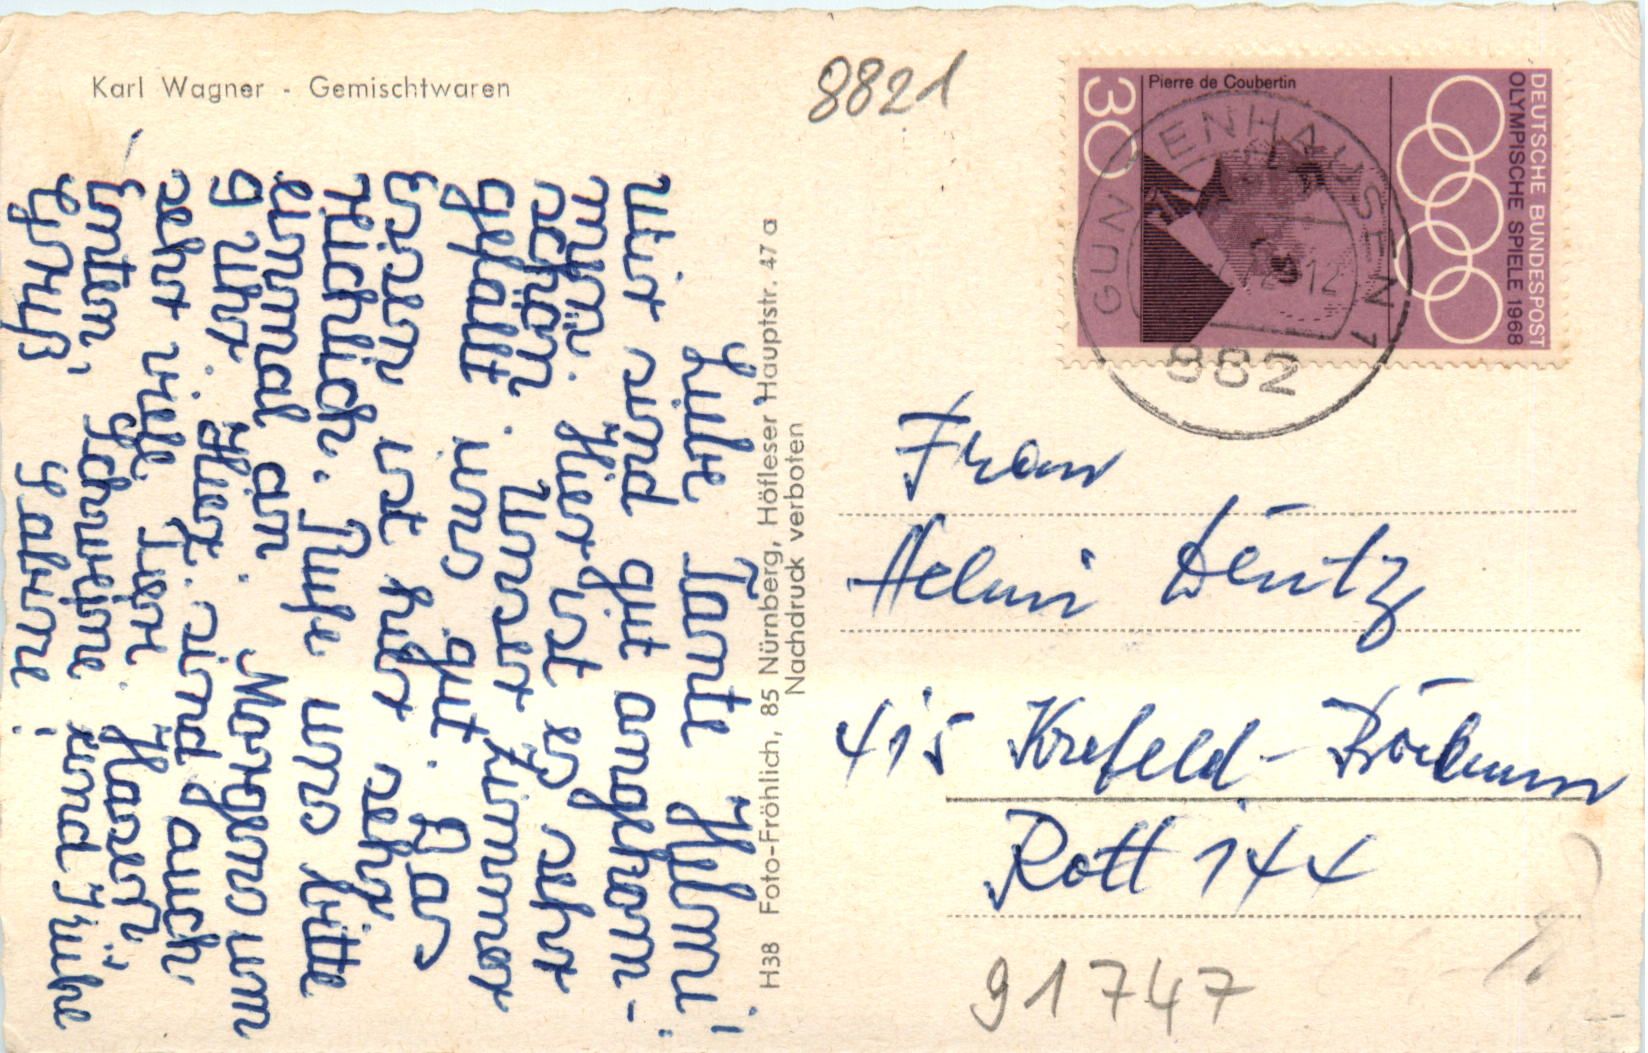 Karl Wagner - Gemischtwaren
8821
Liebe Tante Helmi!
Wir sind gut angekom-
men. Hier ist es sehr
schön. Unser Zimmer
gefällt uns gut. Das
Essen ist hier sehr
reichlich. Rufe uns bitte
einmal an. Morgens um
9 Uhr. Hier sind auch
sehr viele Tiere Hasen,
Enten, Schweine und Kühe
Gruß, Sabine!
H38 Foto-Fröhlich, 85 Nürnberg, Höfleser Hauptstr. 47 a
Nachdruck verboten
30
Pierre de Coubertin
DEUTSCHE BUNDESPOST
OLYMPISCHE SPIELE 1968
GUNZENHAUSEN 1
882
Frau
Helmi Deutz
415 Krefeld-Bockum
Rott 144
91747